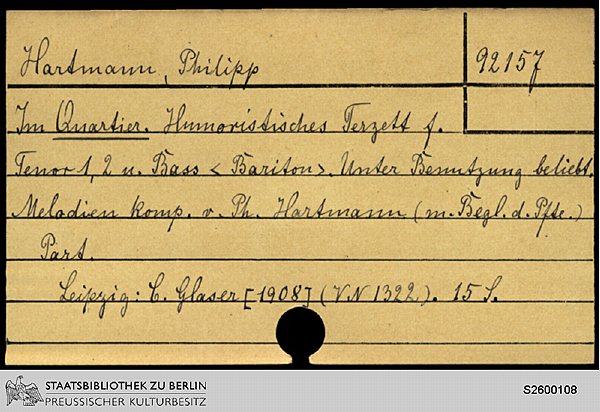 Hartmann, Philipp
92157
Im Quartier. Humoristisches Terzett f.
Tenor 1, 2 u. Bass < Bariton >. Unter Benutzung beliebt.
Melodien komp. v. Ph. Hartmann (m. Begl. d. Pfte.)
Part.
Leipzig: C. Glaser [1908] (VN 1322). 15 S.
STAATSBIBLIOTHEK ZU BERLIN
PREUSSISCHER KULTURBESITZ
S2600108